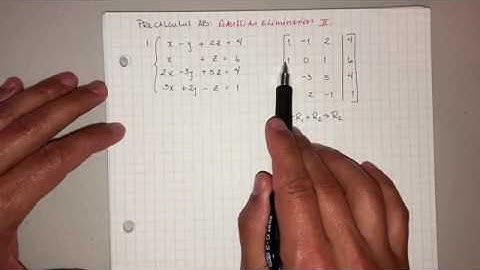 PRECALCULUS AB: GAUSSIAN ELIMINATION II.
1 x - y + 2z = 4
x + z = 6
2x - 3y + 5z = 4
3x + 2y - z = 1
1 -1 2 4
1 0 1 6
-3 5 4
2 -1 1
-R₁ + R₂ → R₂